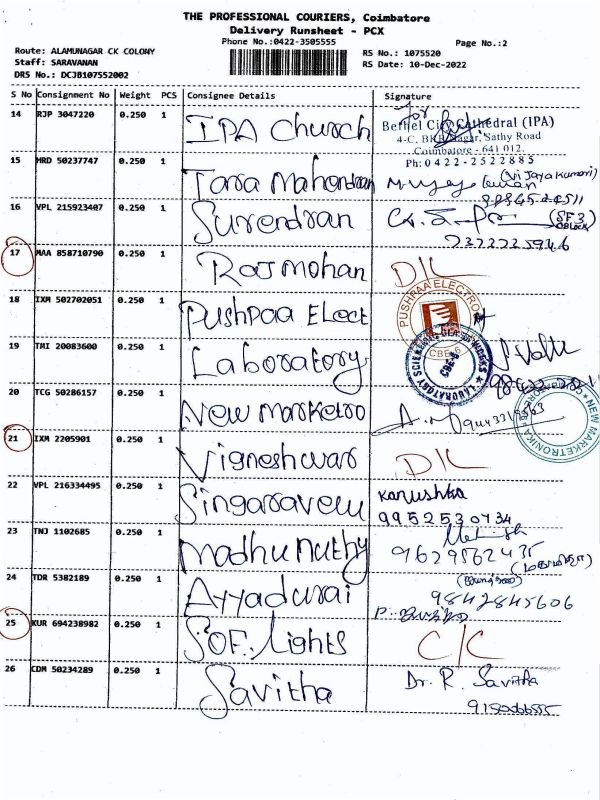 THE PROFESSIONAL COURIERS, Coimbatore
Delivery Runsheet - PCX
Phone No.:0422-3505555
Page No.:2
Route: ALAMUNAGAR CK COLONY
Staff: SARAVANAN
DRS No.: DCJB107552002
RS No.: 1075520
RS Date: 10-Dec-2022
S No Consignment No Weight PCS Consignee Details Signature
14 RJP 3047220 0.250 1 IPA Church
for
Bethel City Cathedral (IPA)
4-C, BKR Nagar, Sathy Road
Coimbatore - 641 012.
Ph: 0422-2522885
15 HRD 50237747 0.250 1 Tara Mahendran
(Vijayakumari)
16 VPL 215923407 0.250 1 Surendran
(SF3)
17 MAA 858710790 0.250 1 Raj mohan D/L
18 IXM 502702051 0.250 1 Pushpaa Elect
PUSHPAA ELECTRO
19 TMI 20083600 0.250 1 Laboratory
CBE-
LABORATORY
20 TCG 50286157 0.250 1 New Marketro
NEW MARKETRONIKA
21 IXM 2205901 0.250 1 Vigneshwar D/L
22 VPL 216334495 0.250 1 Singaravelu Kanushka
9952530734
23 TNJ 1102685 0.250 1 Madhu muthy
9629562435
24 TDR 5382189 0.250 1 Ayyadurai
9842845606
25 KUR 694238982 0.250 1 SOF. Lights C/C
26 CDM 50234289 0.250 1 Savitha Dr. R. Savitha